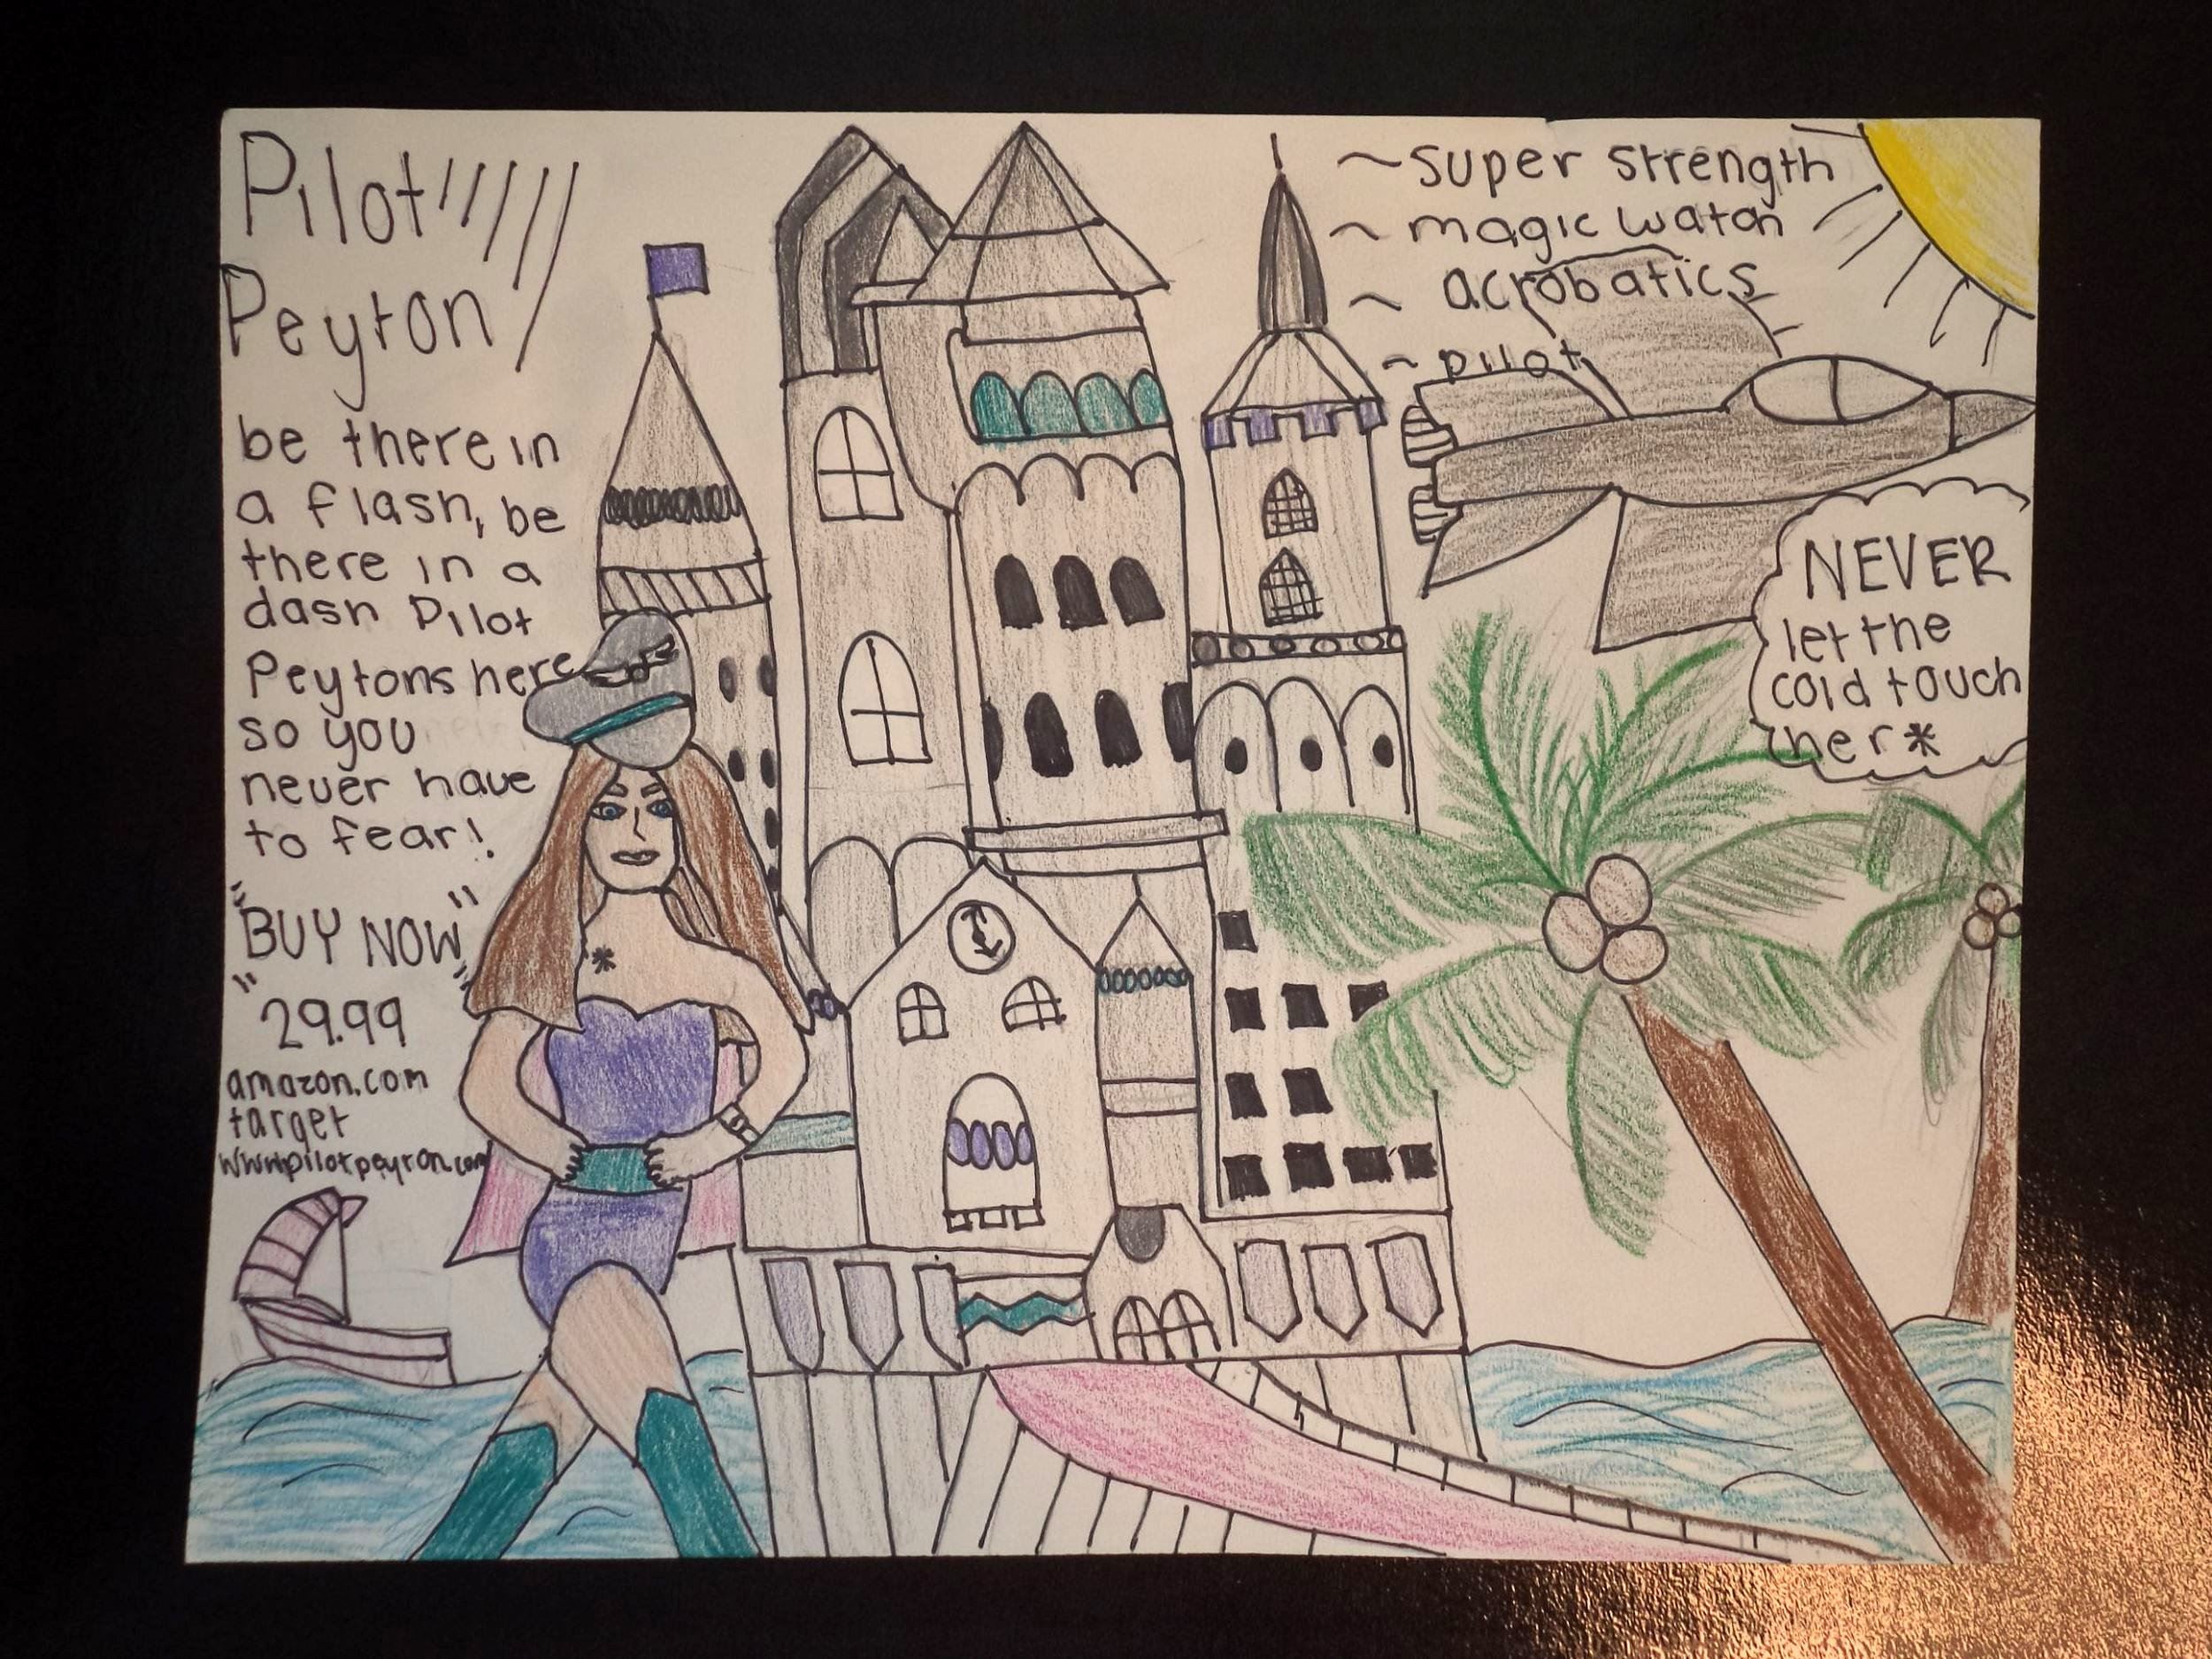 Pilot
Peyton
be there in
a flash, be
there in a
dash Pilot
Peytons here
so you
never have
to fear!
"BUY NOW"
29.99
amazon.com
target
www.pilotpeyton.com
~ super strength
~ magic watch
~ acrobatics
~ pilot
NEVER
let the
cold touch
her*
*